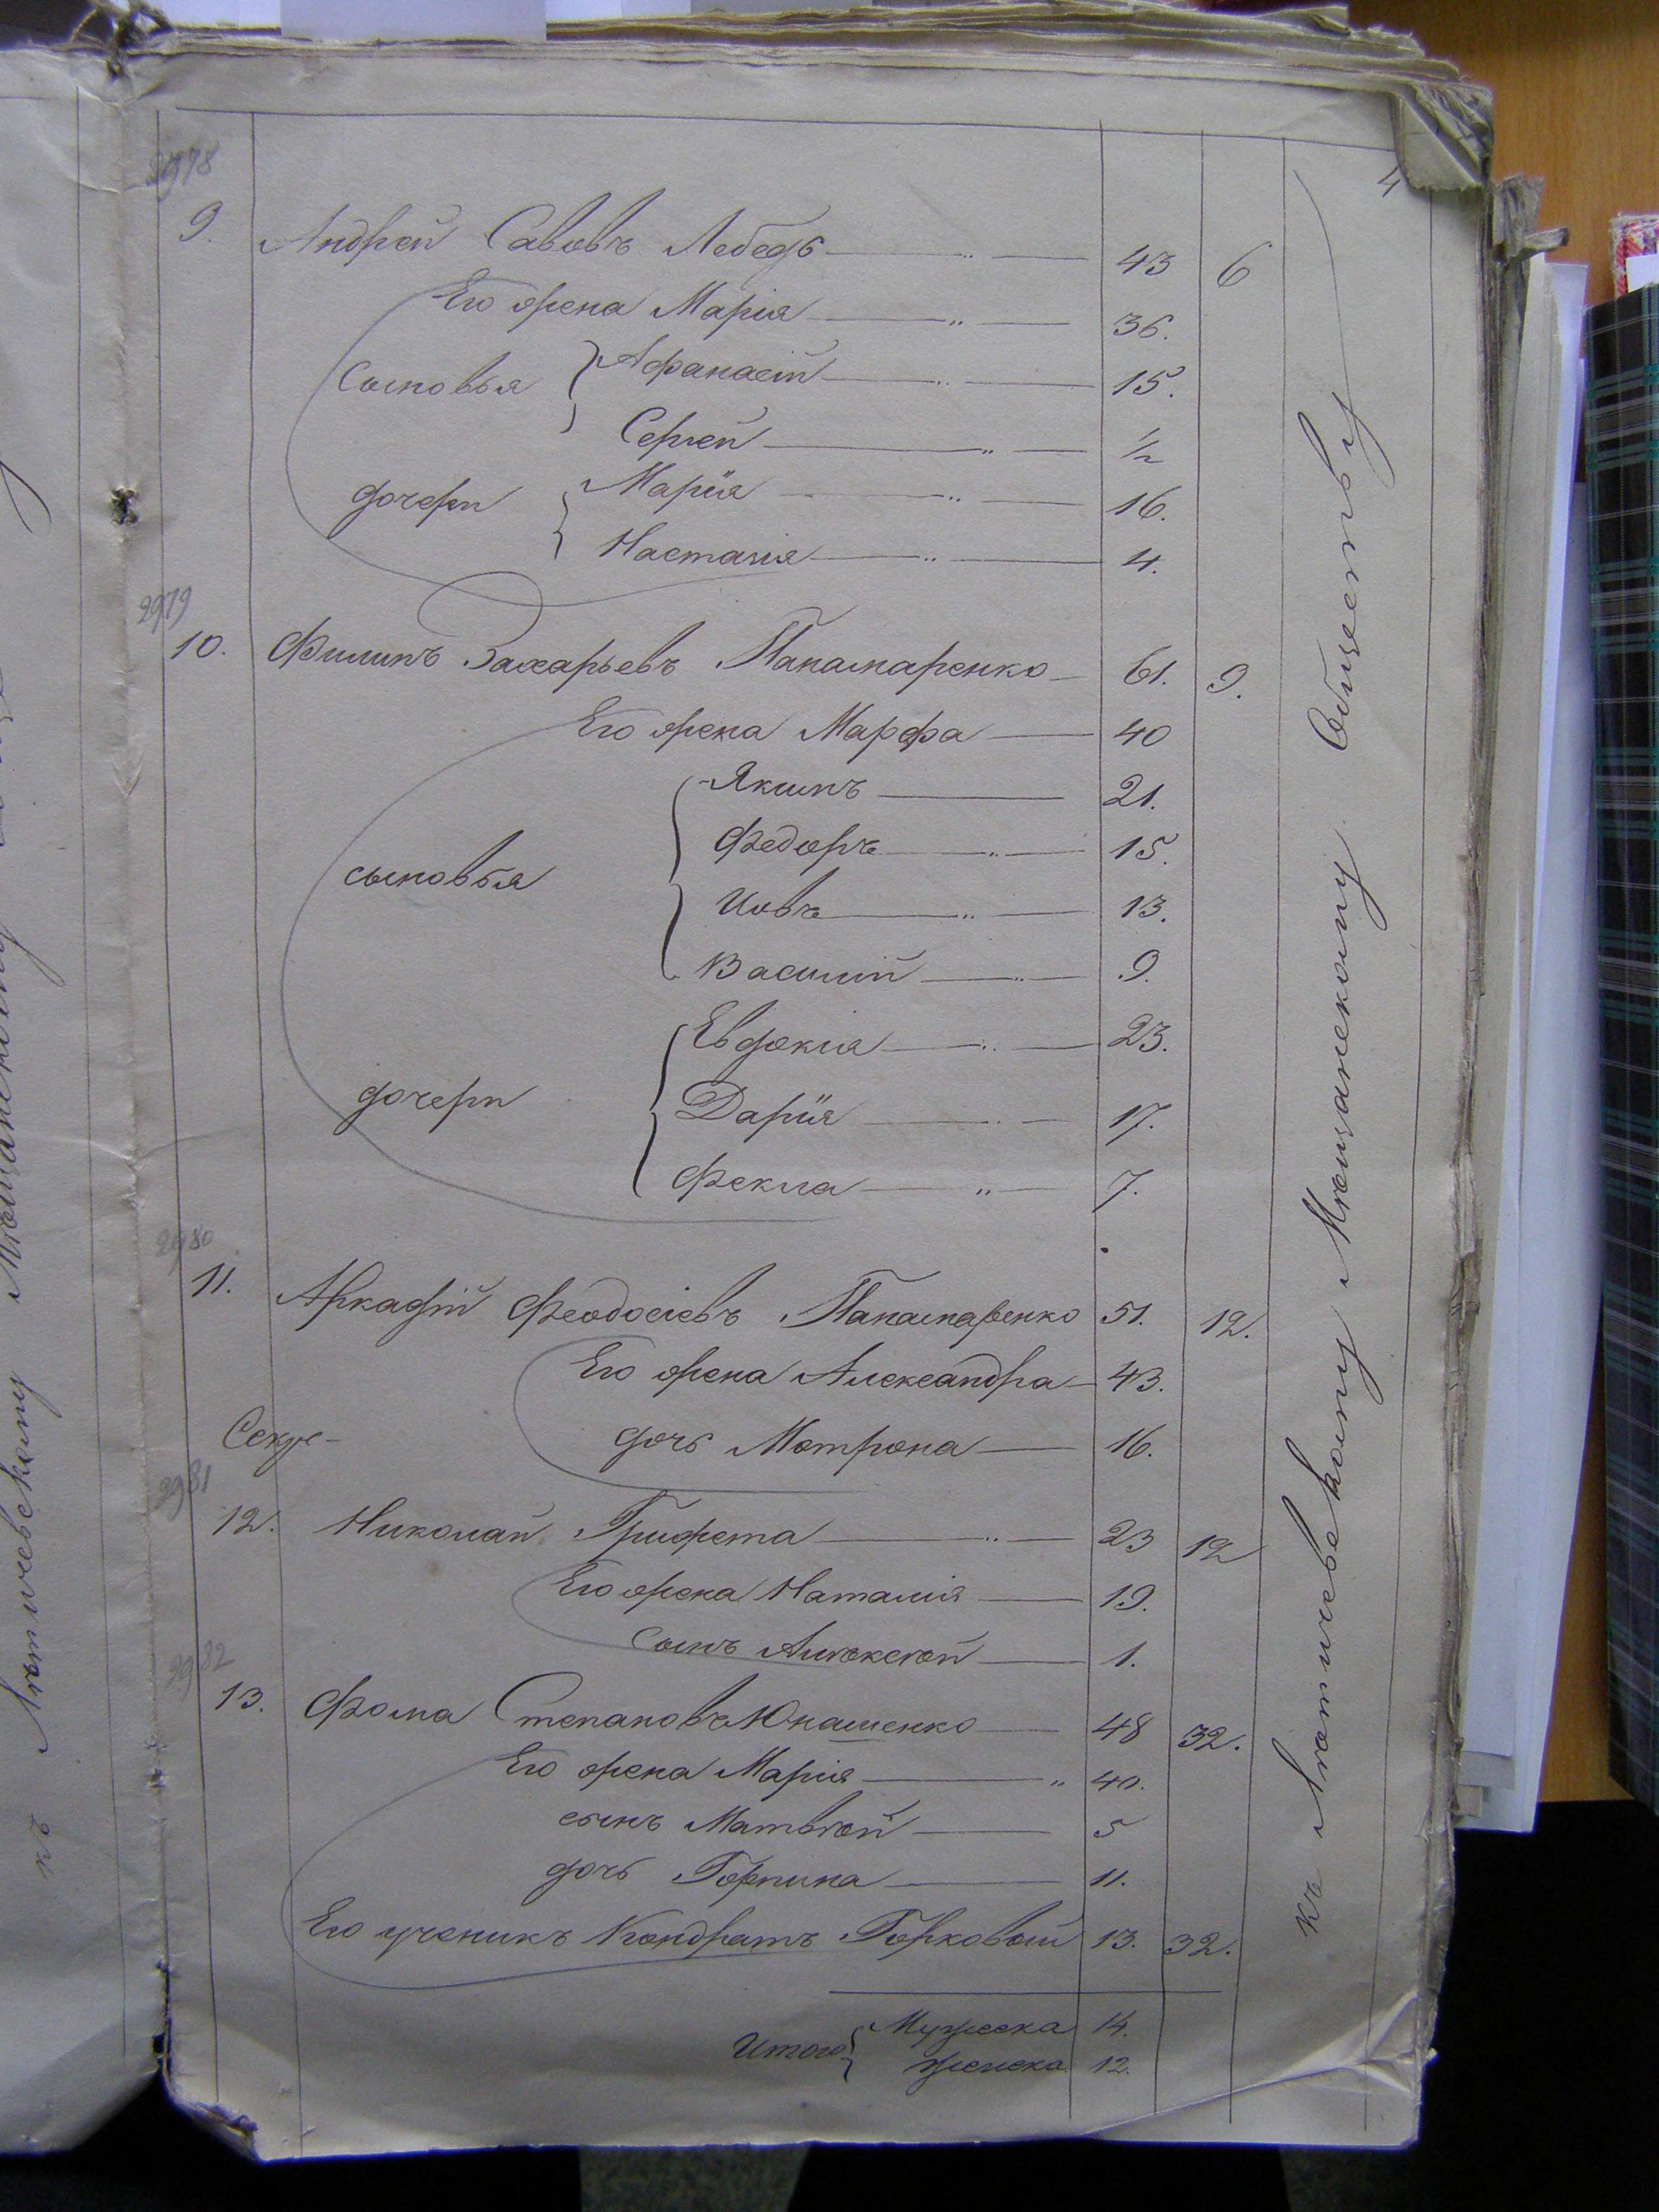 4
2978
9. Андрей Савовъ Лебедь 43 6
Его жена Марія 36.
Сыновья Афанасій 15.
Сергей ½
дочери Марїя 16.
Настасія 4.
2979
10. Филипъ Захарьевъ Панамаренко 61. 9.
Его жена Марфа 40
сыновья Якимъ 21.
Федоръ 15.
Иовъ 13.
Василій 9.
дочери Евдокія 23.
Дарїя 17.
Фекла 7.
2980
11. Аркадій Феодосіевъ Панамаренко 51. 12.
Его жена Александра 43.
дочь Мотрона 16.
2981
12. Николай Грифета 23 12
Его жена Наталія 19.
Сынъ Алѣксѣй 1.
2982
13. Фома Степановъ Юнашенко 48 32.
Его жена Марія 40.
сынъ Матвѣй 5
дочь Горпина 11.
Его ученикъ Кондратъ Горковый 13. 32.
Итого Мужеска 14.
женска 12.
къ Лѣтичевскому Мѣщанскому Обществу
къ Лѣтичевскому Мѣщанскому